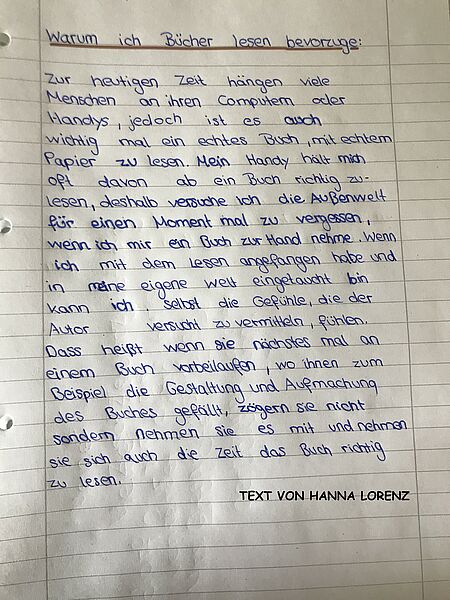 Warum ich Bücher lesen bevorzuge:
Zur heutigen Zeit hängen viele
Menschen an ihren Computern oder
Handys, jedoch ist es auch
wichtig mal ein echtes Buch, mit echtem
Papier zu lesen. Mein Handy hält mich
oft davon ab ein Buch richtig zu-
lesen, deshalb versuche ich die Außenwelt
für einen Moment mal zu vergessen,
wenn ich mir ein Buch zur Hand nehme. Wenn
ich mit dem lesen angefangen habe und
in meine eigene Welt eingetaucht bin
kann ich, selbst die Gefühle, die der
Autor versucht zu vermitteln, fühlen.
Dass heißt wenn sie nächstes mal an
einem Buch vorbeilaufen, wo ihnen zum
Beispiel die Gestaltung und Aufmachung
des Buches gefällt, zögern sie nicht
sondern nehmen sie es mit und nehmen
sie sich auch die Zeit das Buch richtig
zu lesen.
TEXT VON HANNA LORENZ